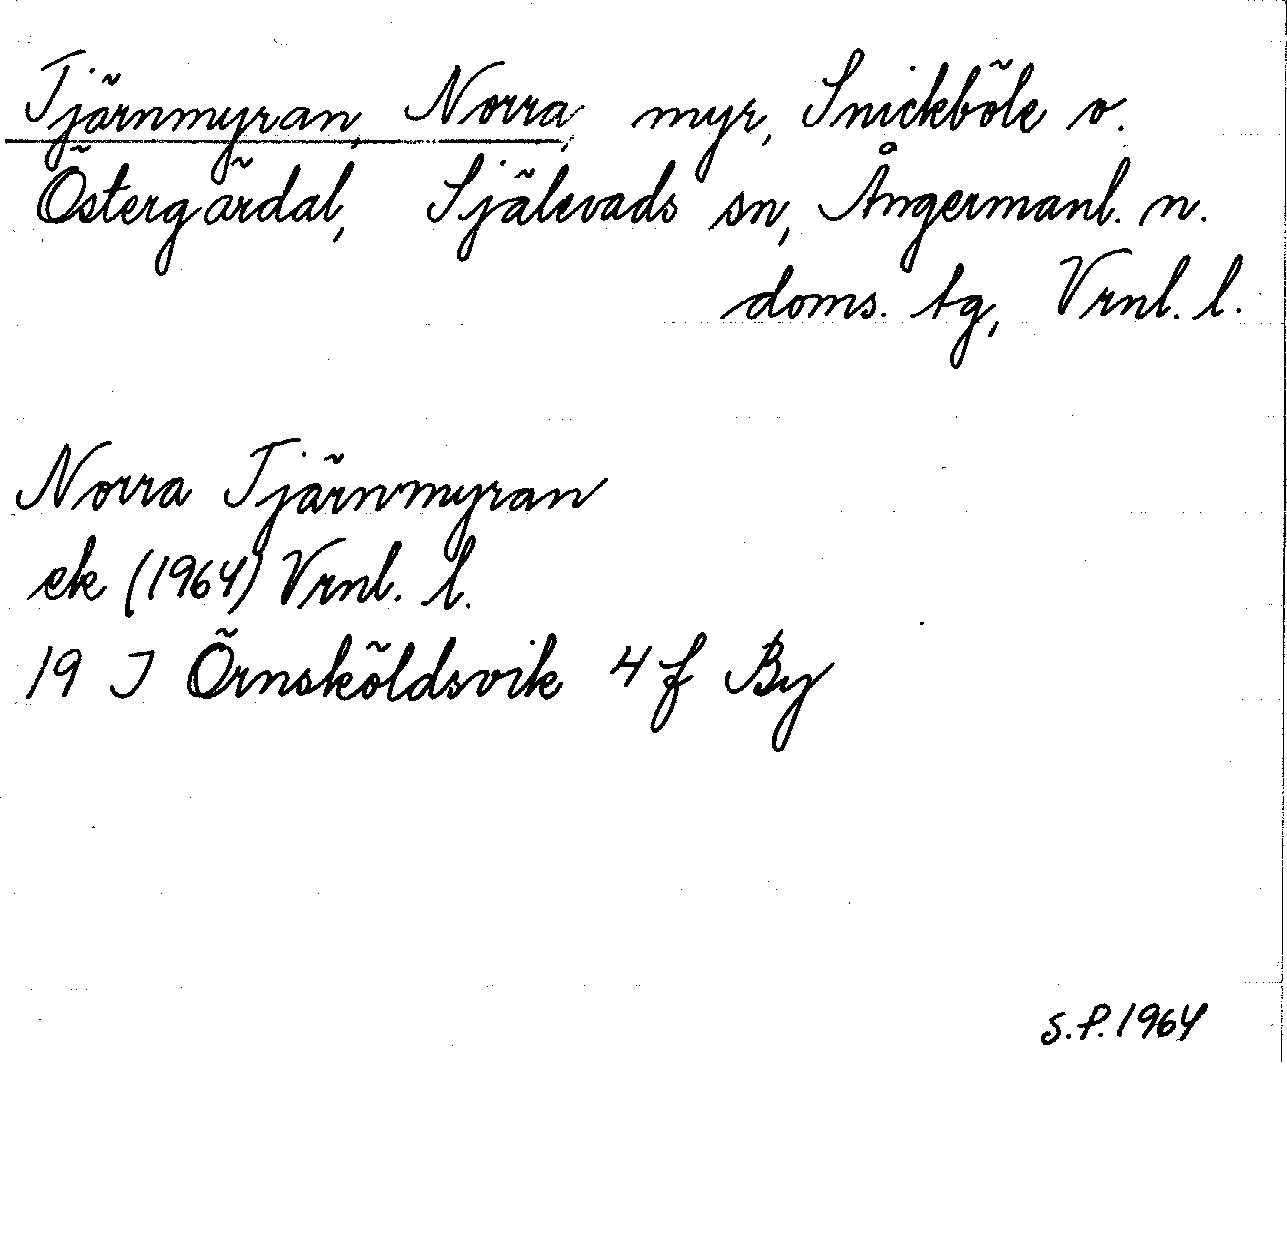 Tjärnmyran, Norra, myr, Snickböle o.
Östergärdal, Själevads sn, Ångermanl. n.
doms. tg, Vrnl. l.
Norra Tjärnmyran
ek (1964) Vrnl. l.
19 J Örnsköldsvik 4 f By
S.P. 1964